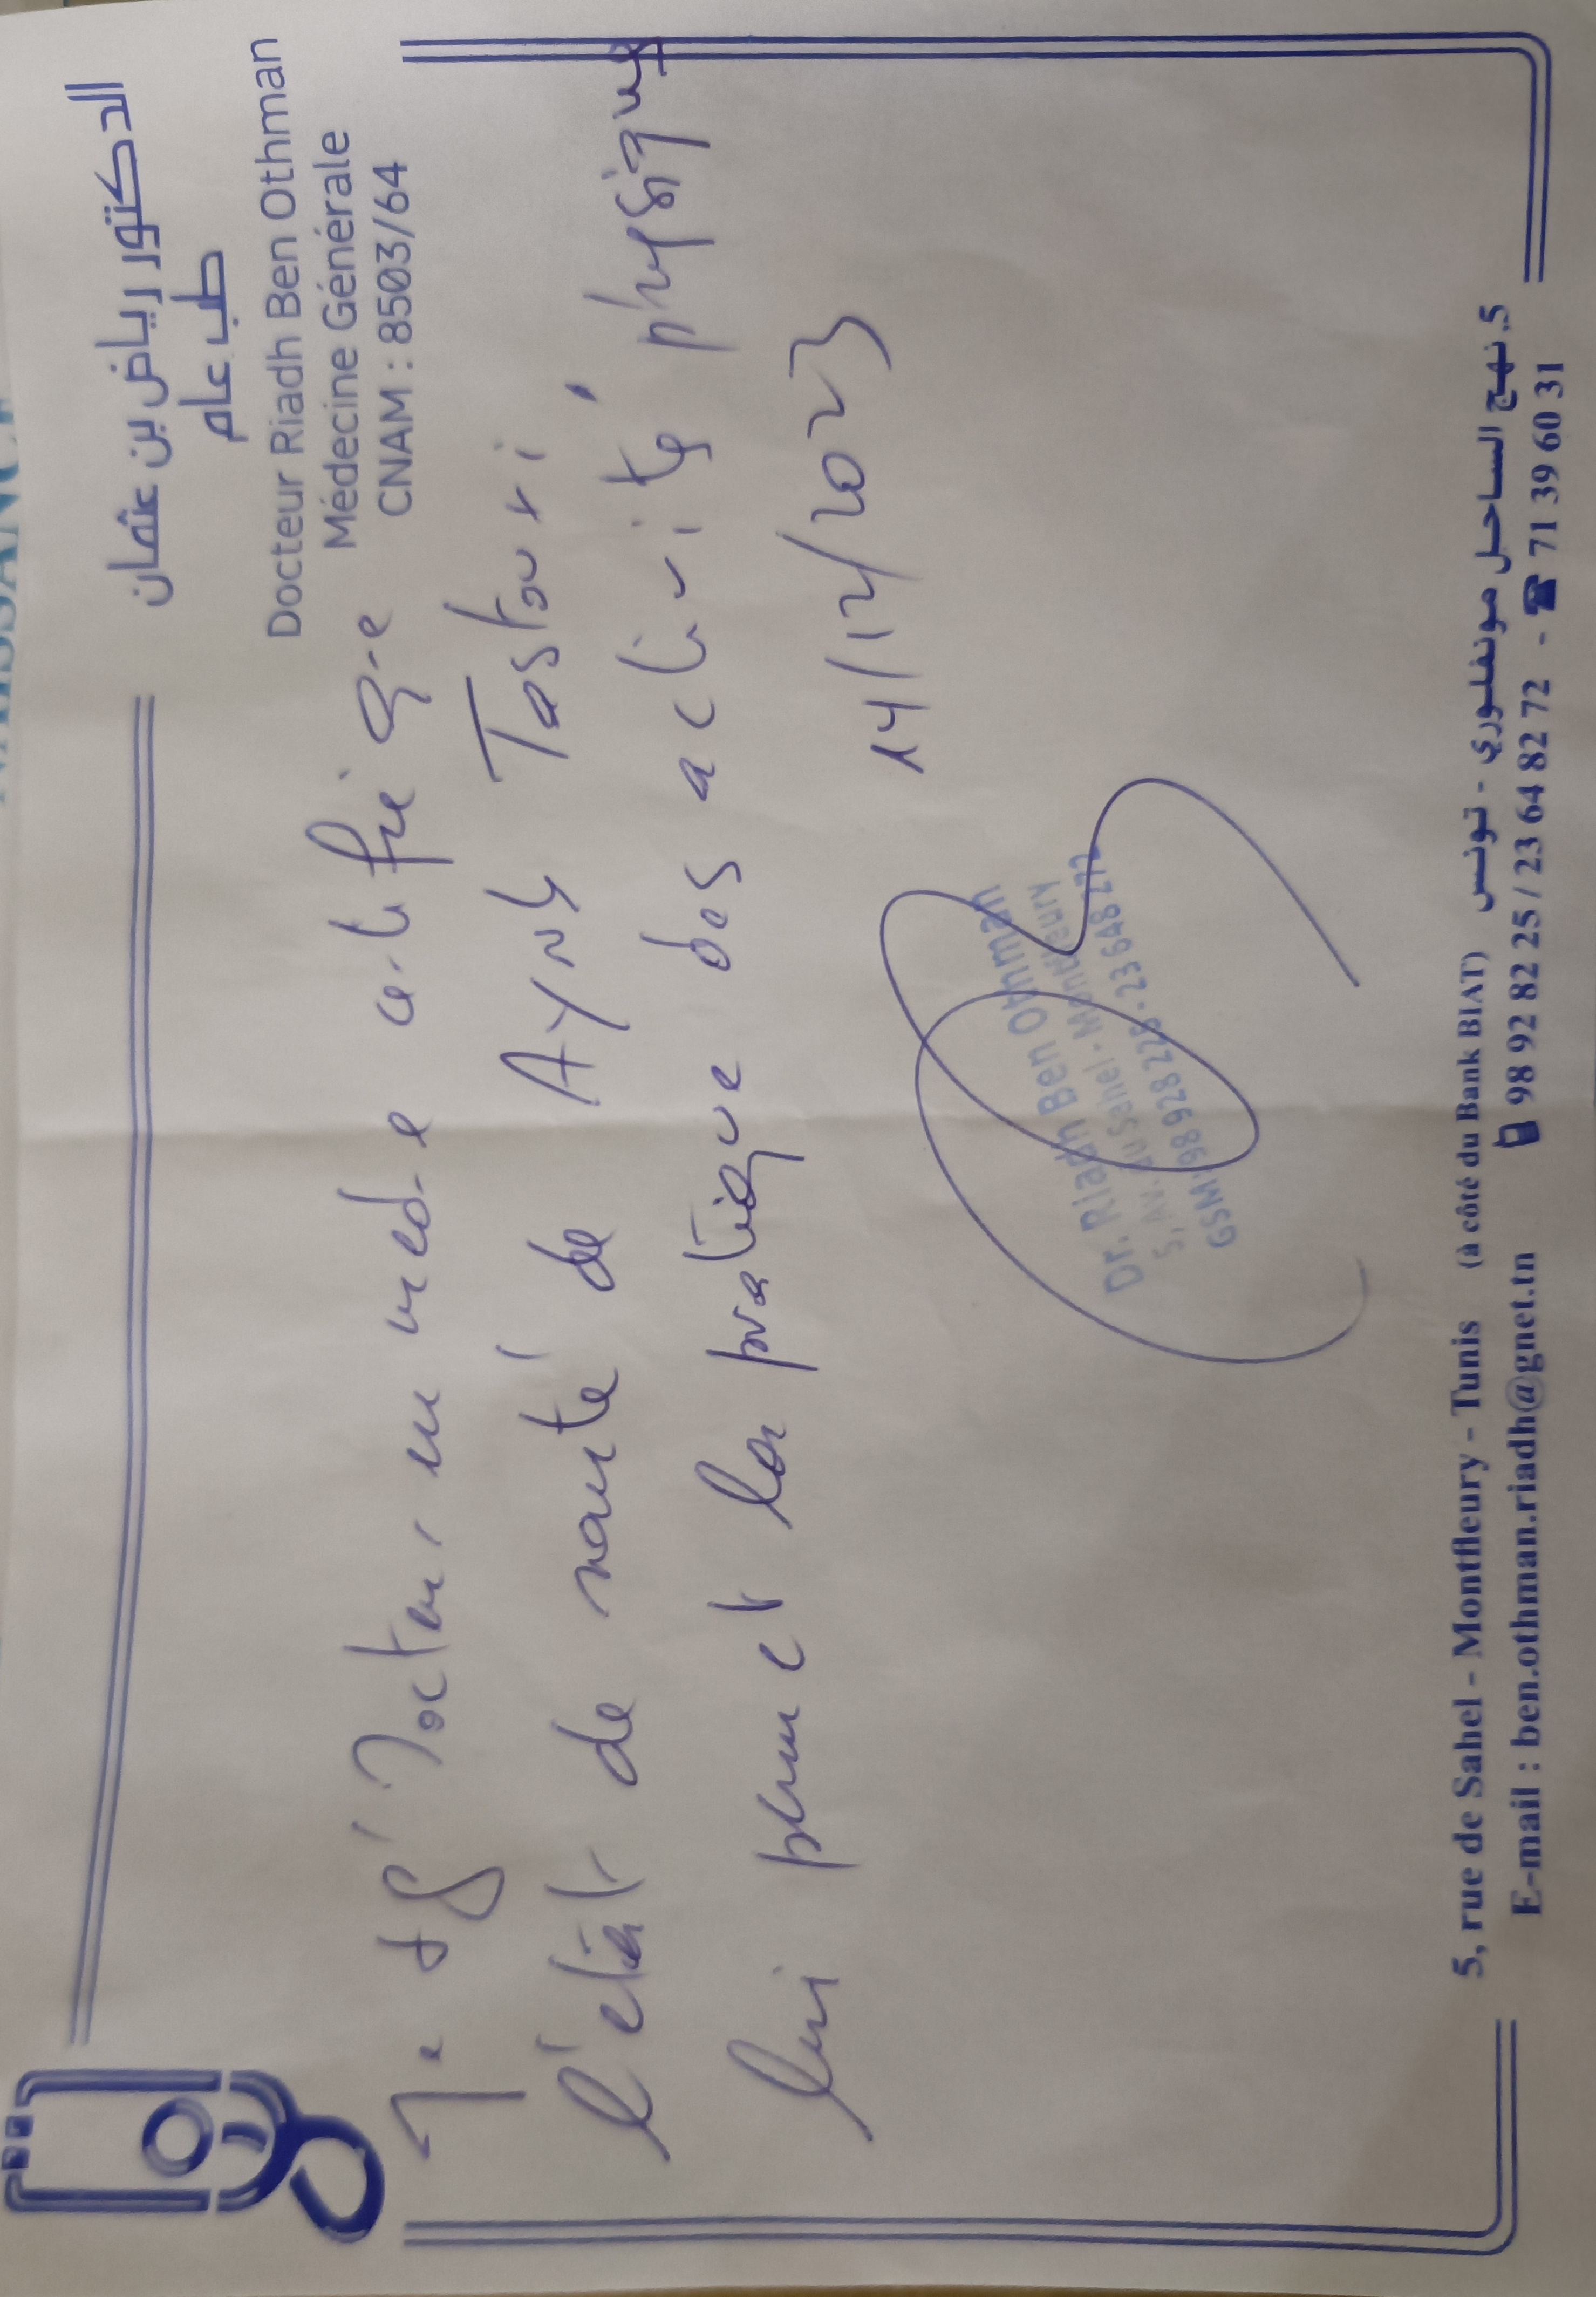 الدكتور رياض بن عثمان
طب عام
Docteur Riadh Ben Othman
Médecine Générale
CNAM : 8503/64
Je Docteur en certifie que
l'état de santé de Testouri
lui permet la pratique des activité physique
14/12/2023
Dr. Riadh Ben Othman
5, Av. du Sahel - Montfleury
GSM: 98 928 225 - 23 648 272
5, rue de Sahel - Montfleury - Tunis (à côté du Bank BIAT) 5، نهج الساحل مونفلوري - تونس
E-mail : ben.othman.riadh@gnet.tn 98 92 82 25 / 23 64 82 72 - ☎ 71 39 60 31